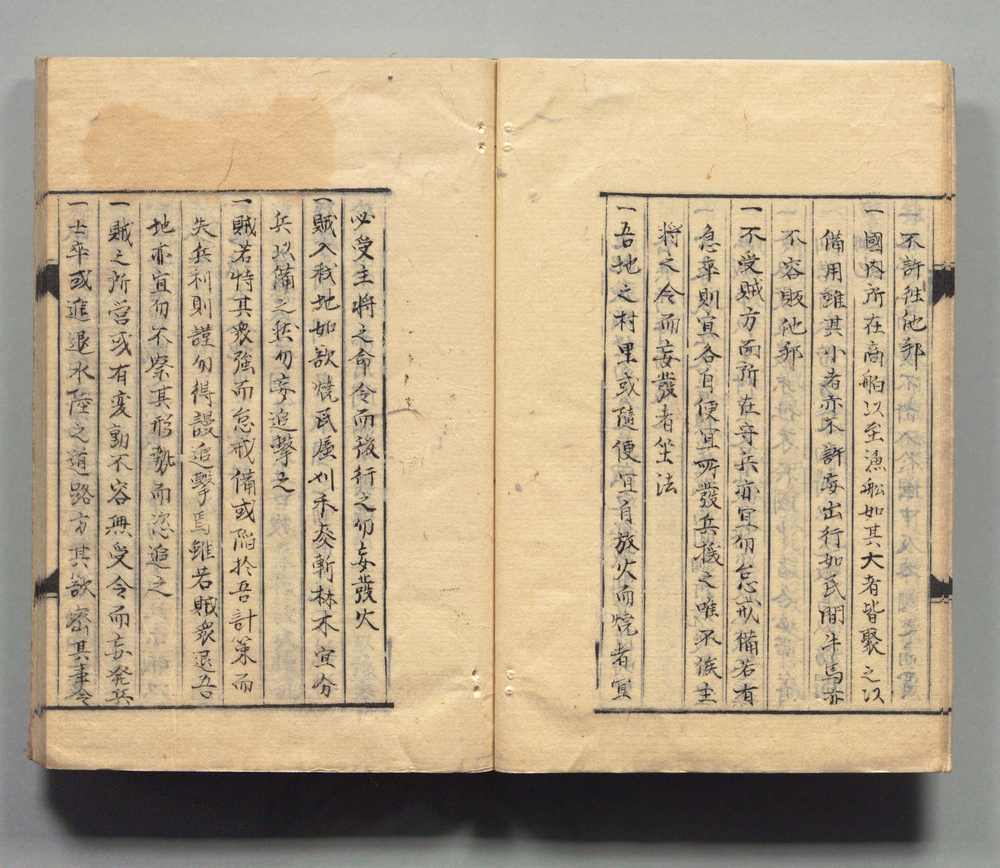 不許往他邦
一國內所在商船以至漁船如其大者皆聚之以
備用雖其小者亦不許每出行如民間牛馬亦
不容販他邦
一不受賊方面所在守兵亦宜勿怠戒備若有
急卒則宜各自便宜所發兵機之唯不俟主
將之令而妄發者坐法
一吾地之村里或隨便宜有放火而燒者宜
必受主將之命令而後行之勿妄發火
一賊入我地如欲燒民屋刈禾麥斬林木宜分
兵以備之然勿妄追擊之
一賊若恃其衆強而怠戒備或陷於吾計策而
失兵利則謹勿得謾追擊焉雖若賊衆退吾
地亦宜勿不察其形勢而恣追之
一賊之所營或有変動不容無受令而妄発兵
一士卒或進退水陸之道路方其欲密其事令